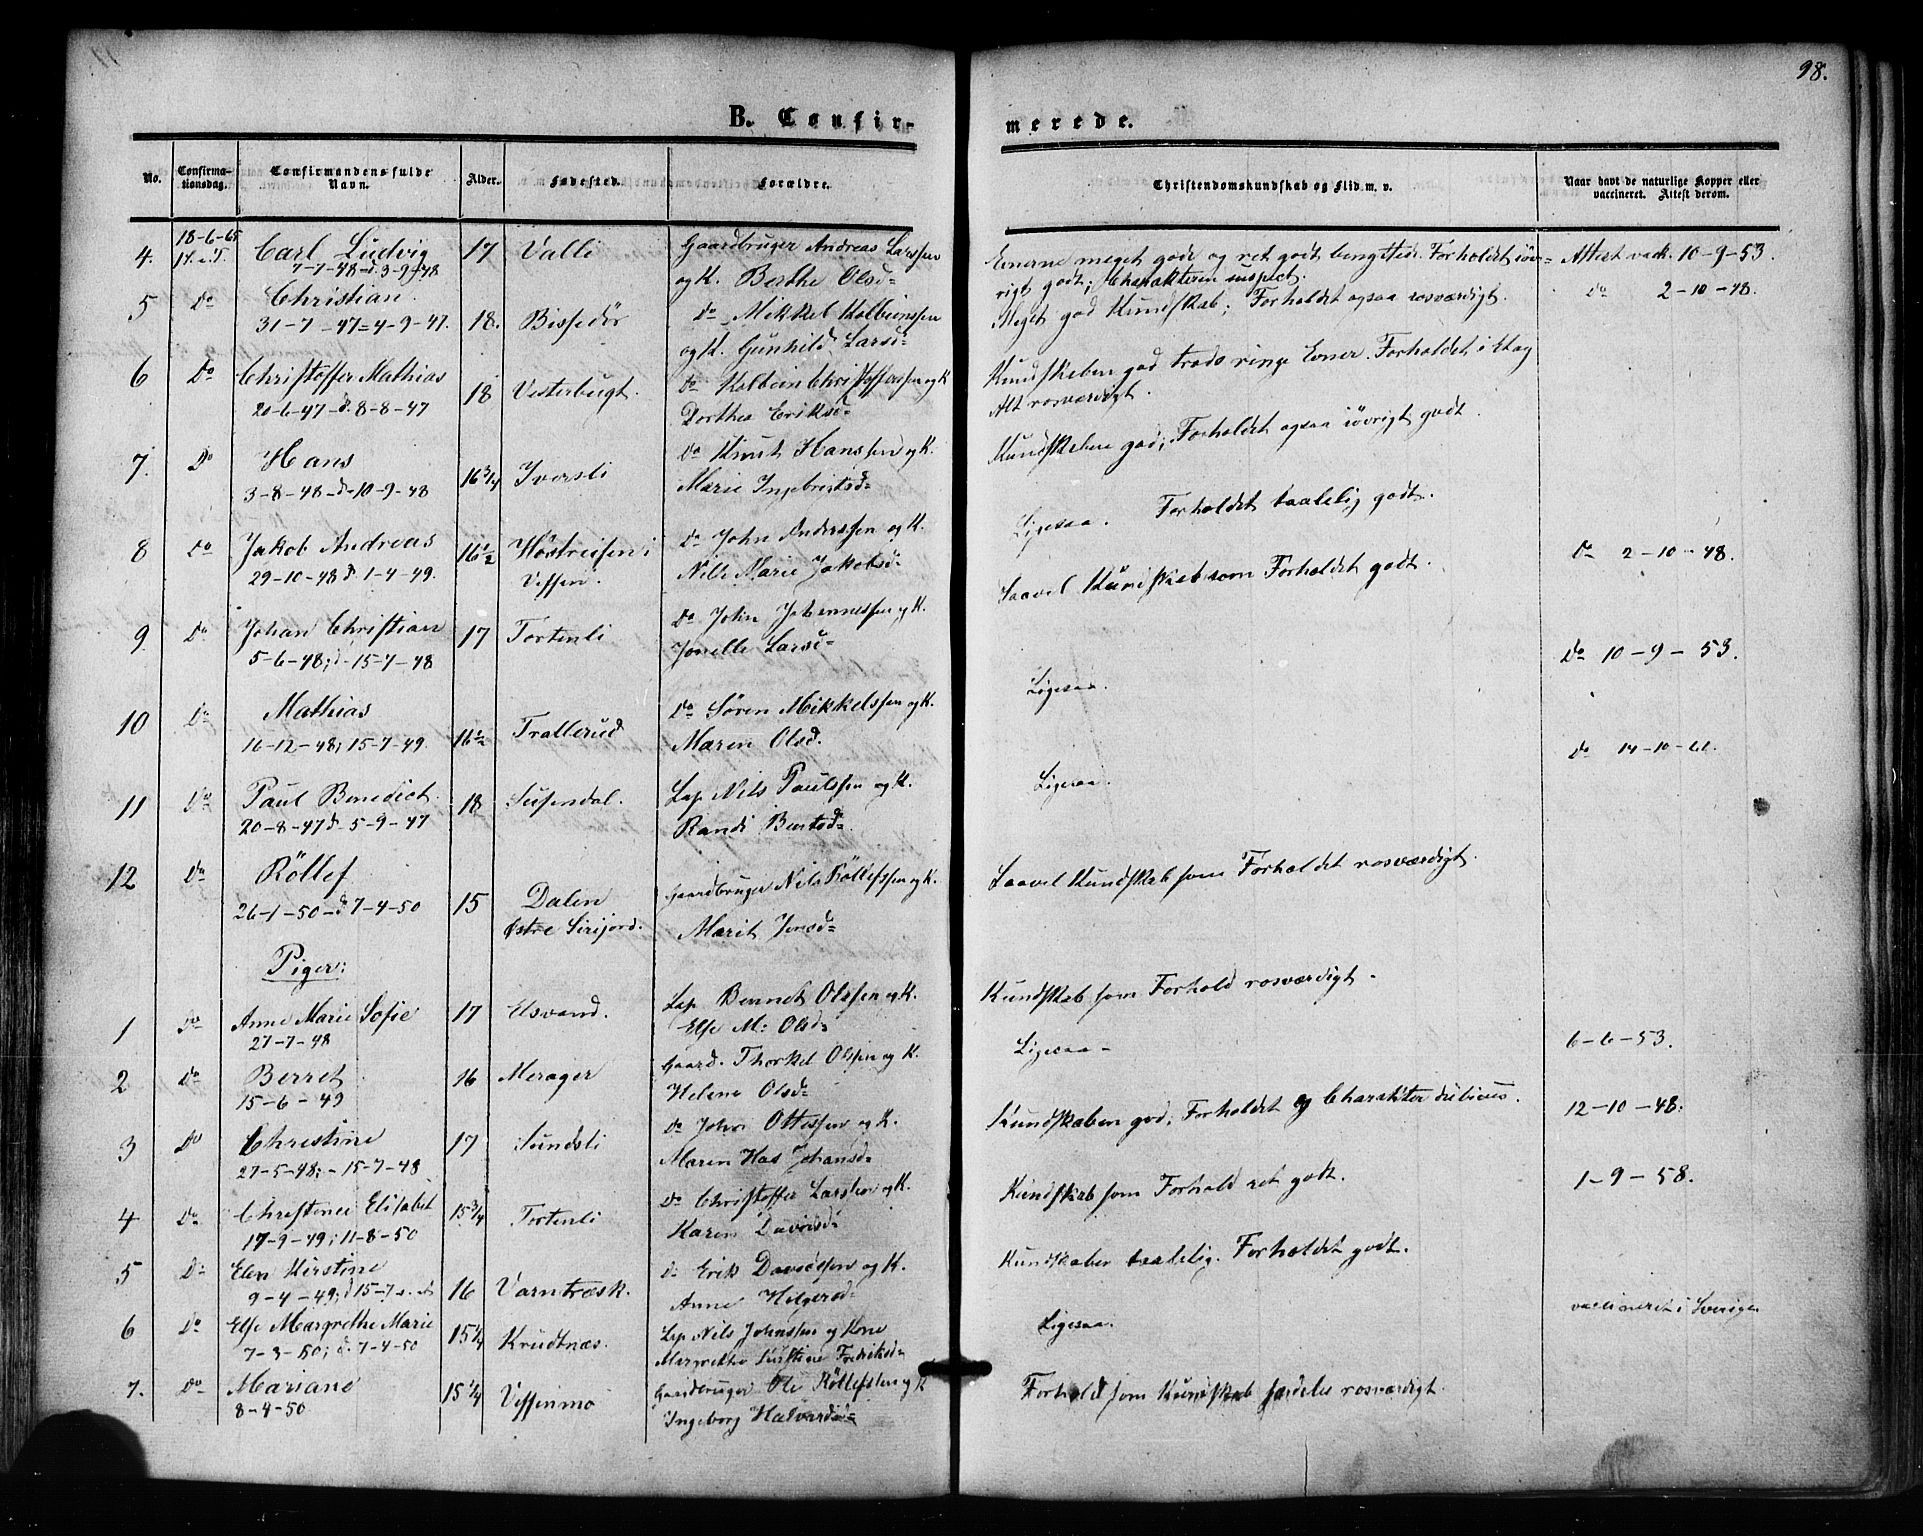 98.
B. Confir-
merede.
No.
Confirma-
tionsdag.
Confirmandens fulde
Navn.
Alder.
Fødested.
Forældre.
Christendomskundskab og Flid m. v.
Naar havt de naturlige Kopper eller
vaccineret. Attest derom.
18-6-65
4. Carl Ludvig 17 Valli Gaardbruger Andreas Larssen
7-7-48 d 3-9-48 og K. Berthe Olsd=
Evnerne meget gode og ret godt benyttede. Forholdet iøv= Attest vacc. 10-9-53.
rigt godt; Charakteren suspect.
5 Do Christian 18. Bissedør Do Mikkel Kolbeinssen
31-7-47=4-9-47. og K. Gunhild Larsd=
Meget god Kundskab; Forholdet ogsaa rosværdigt. Do 2-10-48.
6 Do Christoffer Mathias 18 Vesterbugt. Do Kolbein Christofferssen og K
20-6-47-d. 8-8-47 Dorthea Eriksd=
Kundskaben god trods ringe Evner. Forholdet i Et og
Alt rosværdigt.
7. Do Hans 16 3/4 Iversli Do Knut Hanssen og K.
3-8-48-d-10-9-48 Marie Ingebrigtsd=
Kundskaben god; Forholdet ogsaa iøvrigt godt.
8 Do Jakob Andreas 16 1/2 Høstreisen i Do John Anderssen og K.
29-10-48 d 1-4-49. Vessen. Nils Marie Jakobsd=
Ligesaa. Forholdet taalelig godt.
Do 2-10-48.
9. Do Johan Christian 17 Tortenli Do John Johannessen og K.
5-6-48; d-15-7-48 Jonelle Larsd=
Saavel Kundskab som Forholdet godt.
Do 10-9-53.
10 Do Mathias 16 1/2 Trallerud Do Søren Mikkelssen og K.
16-12-48; 15-7-49. Maren Olsd.
Ligesaa.
Do 14-10-61.
11 Do Paul Benedict. 18 Susendal. Lap Nils Paulssen og K.
20-8-47 d. 5-9-47 Randi Bentsd=
Ligesaa.
12 Do Röllef 15 Dalen Gaardbruger Nils Röllefssen og K.
26-1-50-d 7-4-50 Østre Sirijord. Marit Jonsd=
Saavel Kundskab som Forholdet rosværdigt.
Piger:
1 Do Anne Marie Sofie 17 Elsvand. Lap Bennet Olssen og K.
27-7-48 Else M: Olsd=
Kundskab som Forhold rosværdigt.
6-6-53.
2 Do Berret 16 Merager Gaard. Thorkel Olssen og K.
15-6-49 Helene Olsd=
Ligesaa-
12-10-48.
3 Do Christine 17 Sundsli Do John Ottessen og K.
27-5-48; - 15-7-48 Maren Has Johansd=
Kundskaben god; Forholdet og Charakter dubiøs.
1-9-58.
4 Do Christine Elisabet 15 3/4 Tortenli Do Christoffer Larssen og K.
17-9-49; 11-8-50 Karen Davidsd=
Kundskab som Forhold ret godt.
5 Do Elen Kirstine 16 Varntræsk. Do Erik Davidssen og K.
9-4-49; d 15-7- Anne Helgesd=
Kundskaben taalelig. Forholdet godt.
6 Do Else Margrethe Marie 15 1/4 Krudtnæs. Lap Nils Johnssen og Kone
7-3-50; d. 7-4-50 Margrethe Kirstine Fredriksd=
Ligesaa.
vaccineret i Sverige
7. Do Mariane 15 1/4 Vessenmo Gaardbruger Ole Röllefssen og K
8-4-50 Ingeborg Halvardsd=
Forhold som Kundskab særdeles rosværdigt.